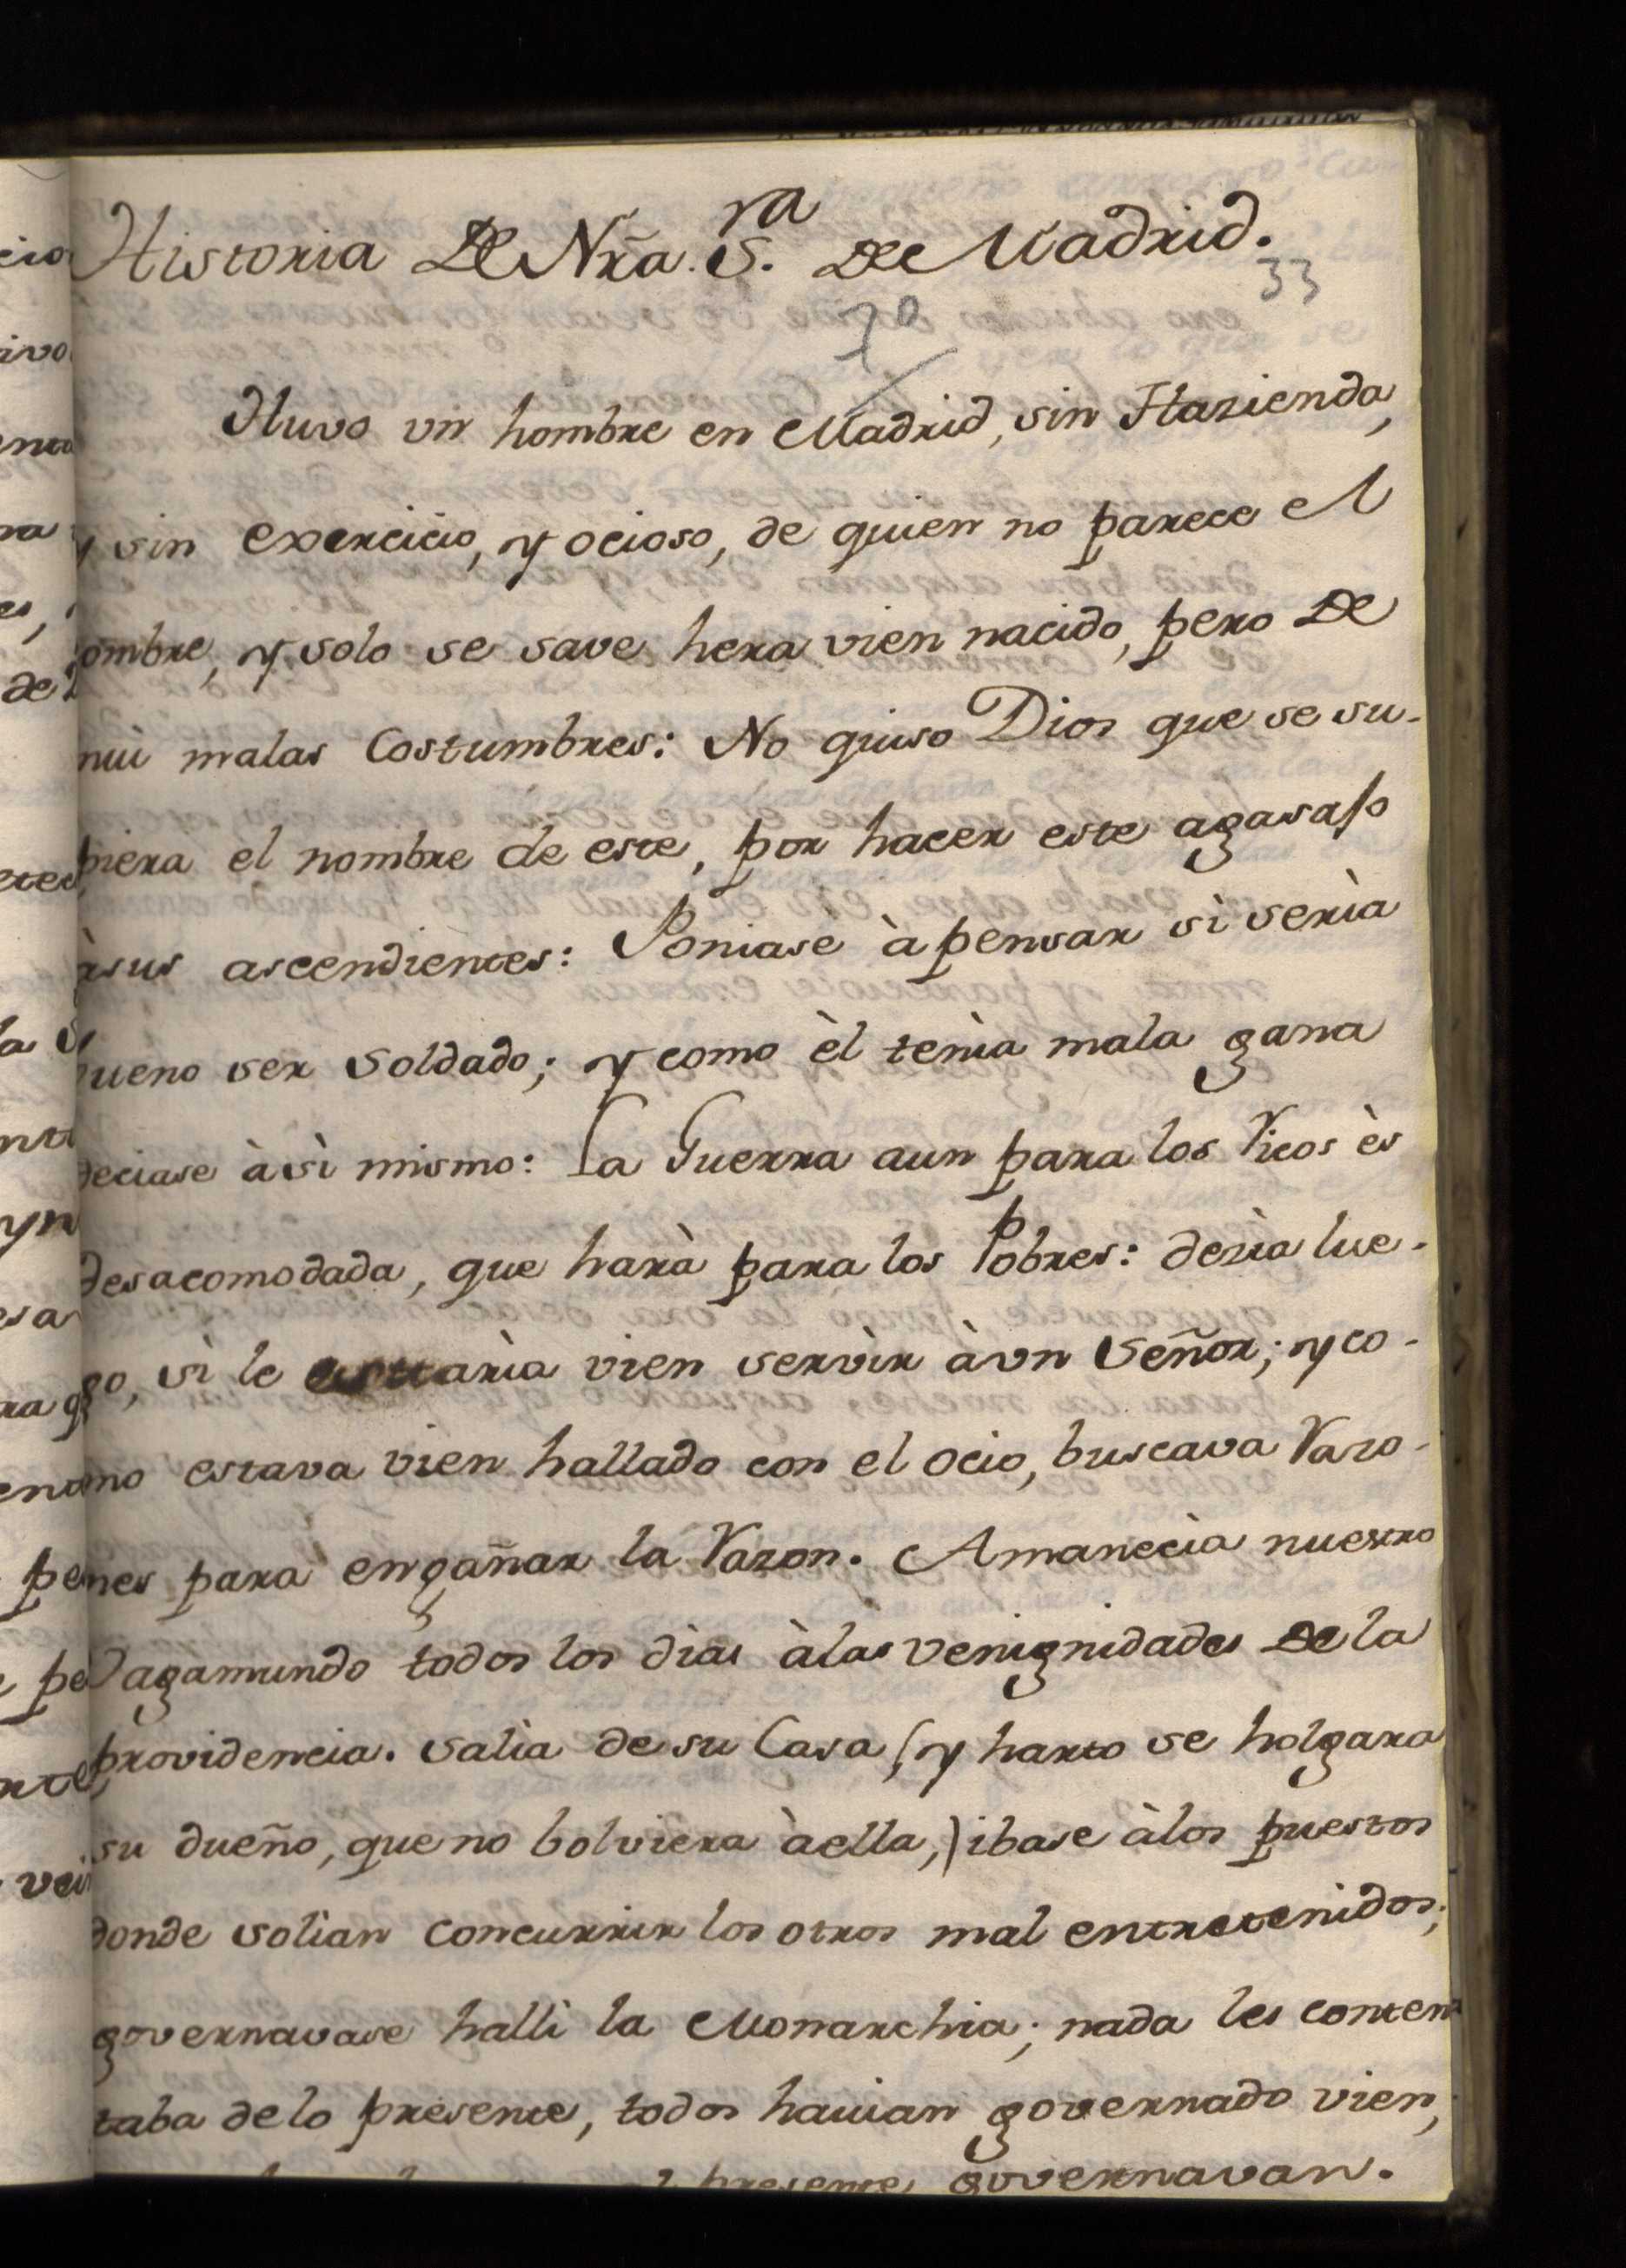 Historia De Nrã. S.ra De Madrid.
33
7º
Huvo vn hombre en Madrid, sin Hazienda,
y sin exercicio, y ocioso, de quien no parece el
ombre, y solo se save hera vien nacido, pero De
mui malas Costumbres: No quiso Dios que se su-
piera el nombre de este, por hacer este agasajo
àsus ascendientes: Poniase à pensar sì serìa
bueno ser Soldado; y como èl tenìa mala gana
deciase àsì mismo: La Guerra aun para los Ricos ès
desacomodada, que harà para los Pobres: dezìa lue-
go, sì le estarìa vien servìr àvn Señor; y co-
mo estava vien hallado con el ocio, buscava Razo-
nes para engañar la Razon. Amanecìa nuestro
Vagamundo todos los dìas àlas venignidades De la
providencia. Salìa de su Casa (y harto se holgara
su dueño, que no bolviera àella,) ibase àlos puestos
donde solìan concurrir los otros mal entretenidos;
governavase hallì la Monarchia; nada les conten
taba de lo presente, todos havian governado vien,
presente governavan.